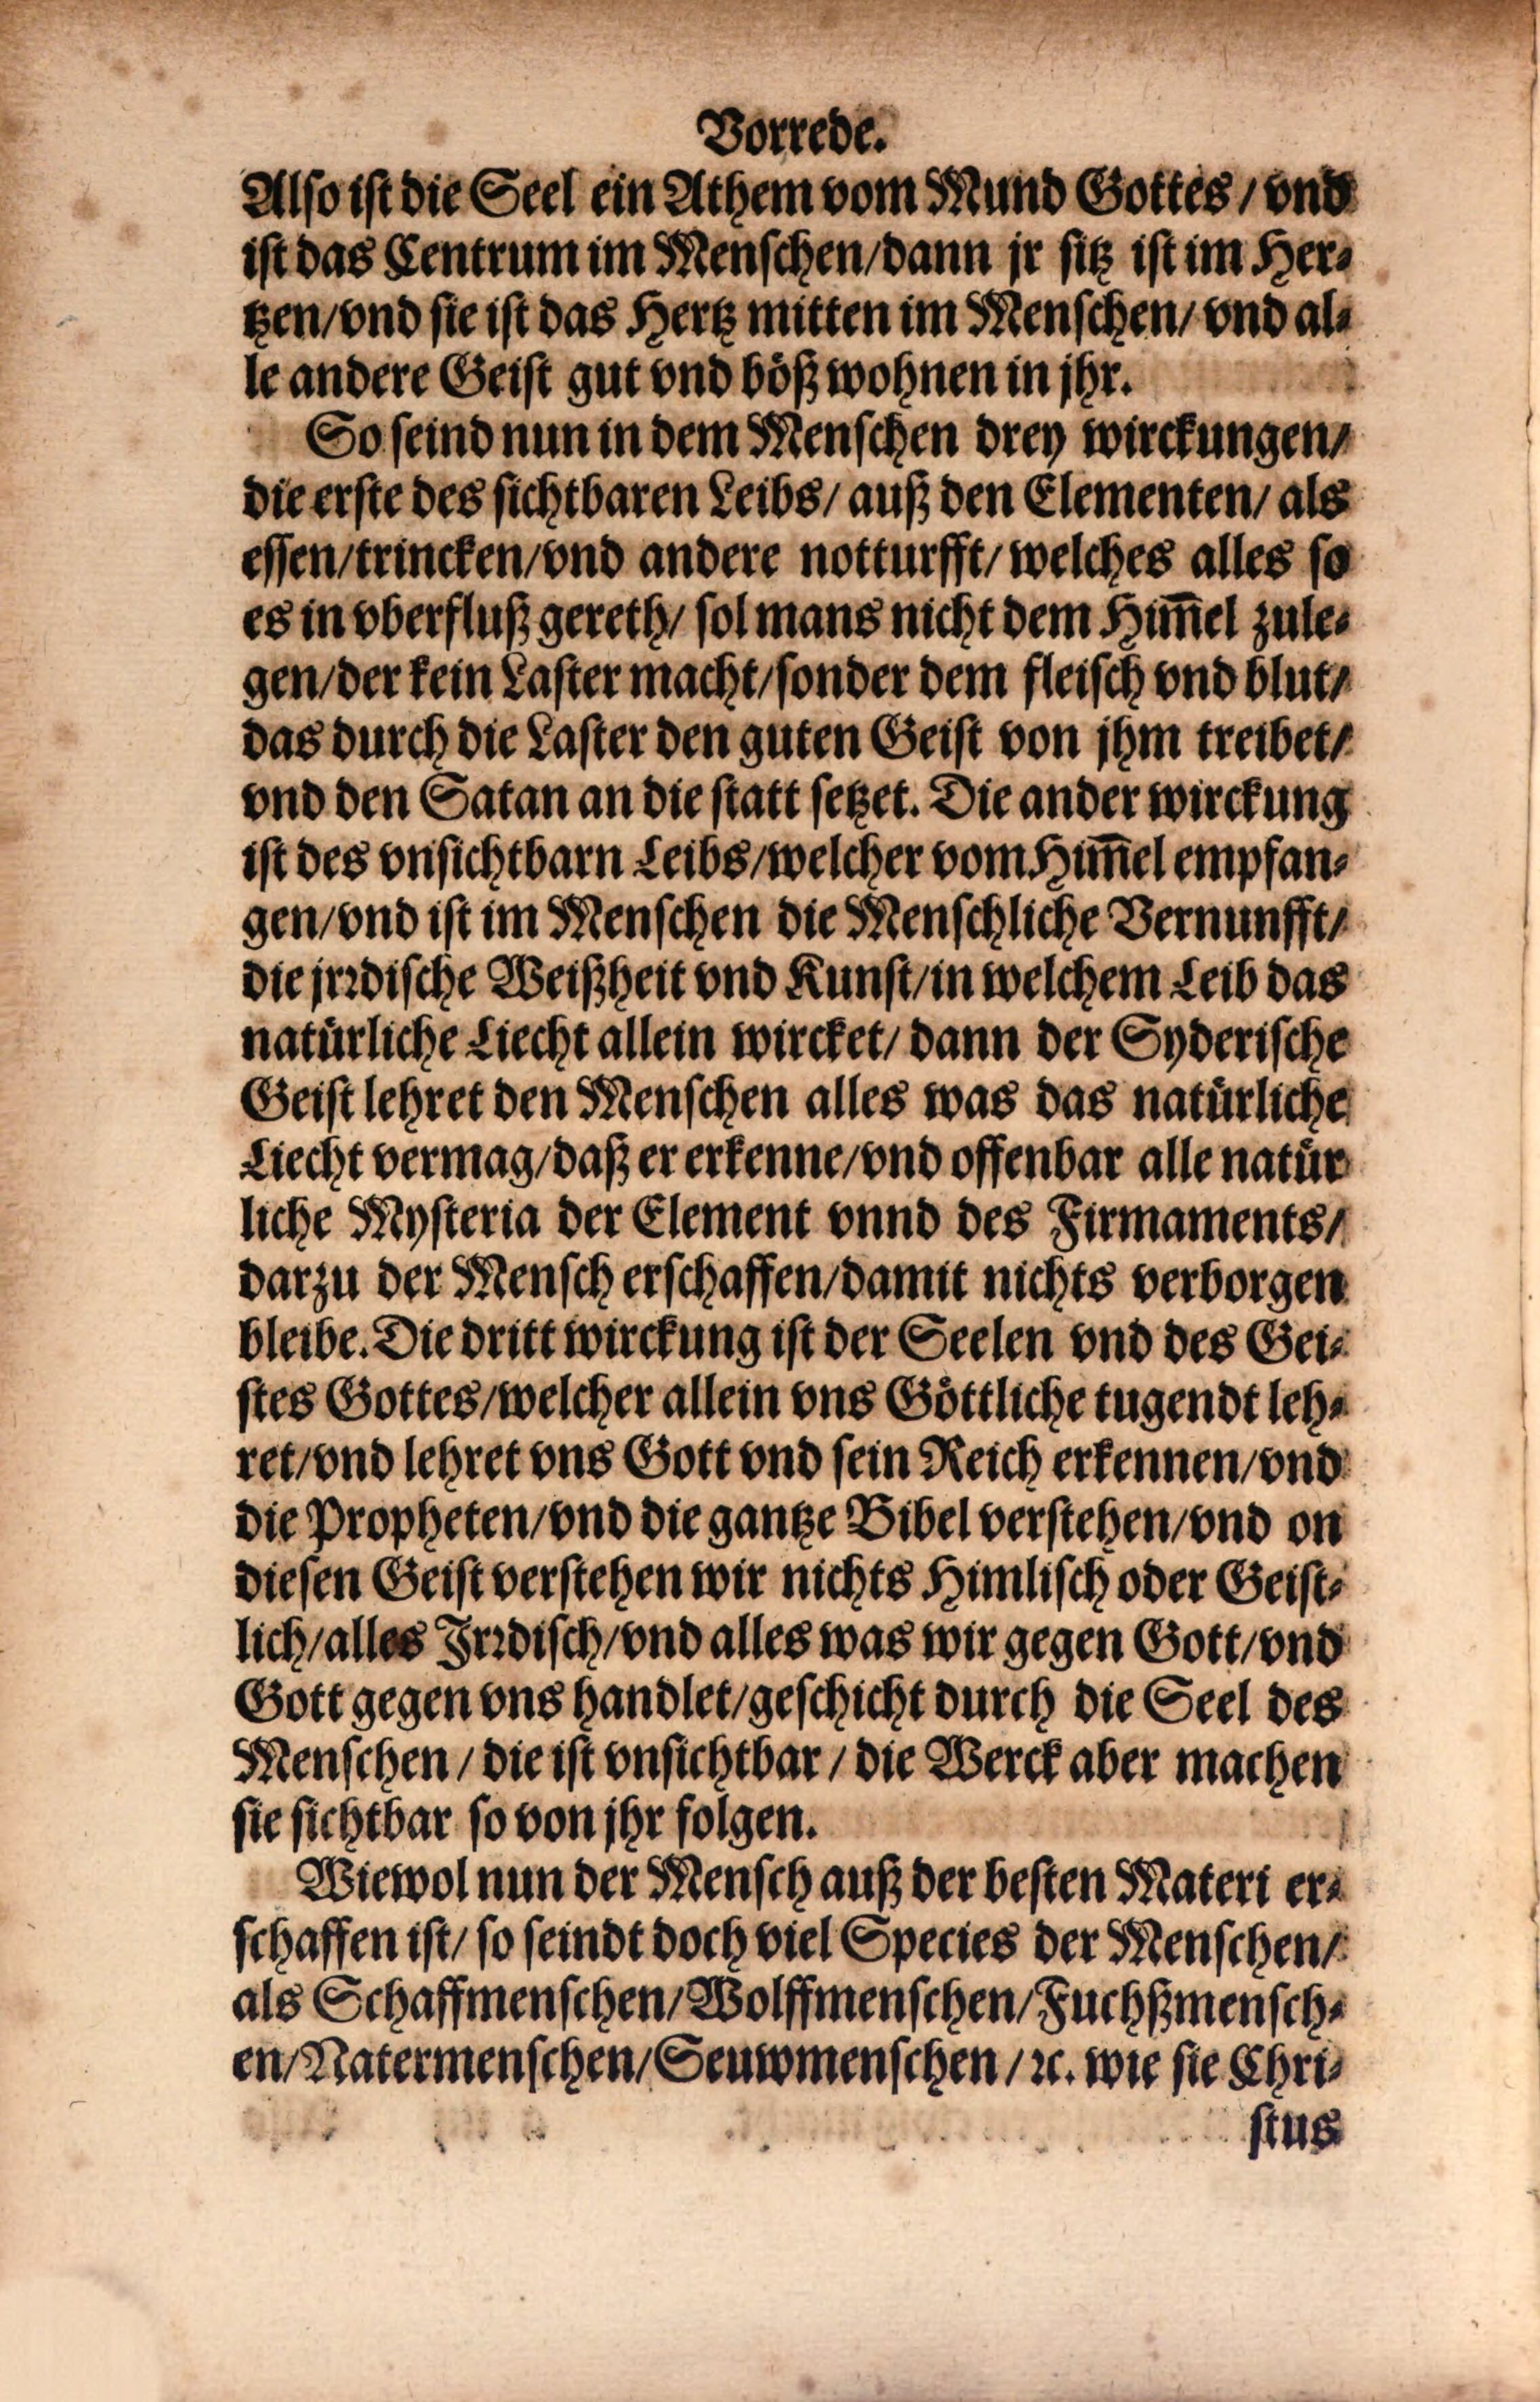 Vorrede.
Also ist die Seel ein Athem vom Mund Gottes / vnd
ist das Centrum im Menschen/dann jr sitz ist im Her-
tzen/vnd sie ist das Hertz mitten im Menschen/ vnd al-
le andere Geist gut vnd böß wohnen in jhr.
So seind nun in dem Menschen drey wirckungen/
die erste des sichtbaren Leibs/ auß den Elementen/ als
essen/trincken/vnd andere notturfft/ welches alles so
es in vberfluß gereth/ sol mans nicht dem Him̄el zule-
gen/der kein Laster macht/sonder dem fleisch vnd blut/
das durch die Laster den guten Geist von jhm treibet/
vnd den Satan an die statt setzet. Die ander wirckung
ist des vnsichtbarn Leibs/welcher vom Him̄el empfan-
gen/vnd ist im Menschen die Menschliche Vernunfft/
die jrꝛdische Weißheit vnd Kunst/in welchem Leib das
natürliche Liecht allein wircket/ dann der Syderische
Geist lehret den Menschen alles was das natürliche
Liecht vermag/daß er erkenne/vnd offenbar alle natür
liche Mysteria der Element vnnd des Firmaments/
darzu der Mensch erschaffen/damit nichts verborgen
bleibe. Die dritt wirckung ist der Seelen vnd des Gei-
stes Gottes/welcher allein vns Göttliche tugendt leh-
ret/vnd lehret vns Gott vnd sein Reich erkennen/vnd
die Propheten/vnd die gantze Bibel verstehen/vnd on
diesen Geist verstehen wir nichts Himlisch oder Geist-
lich/alles Jrꝛdisch/vnd alles was wir gegen Gott/vnd
Gott gegen vns handlet/geschicht durch die Seel des
Menschen / die ist vnsichtbar / die Werck aber machen
sie sichtbar so von jhr folgen.
Wiewol nun der Mensch auß der besten Materi er-
schaffen ist/ so seindt doch viel Species der Menschen/
als Schaffmenschen/Wolffmenschen/Fuchßmensch-
en/Natermenschen/Seuwmenschen /ꝛc. wie sie Chri-
stus